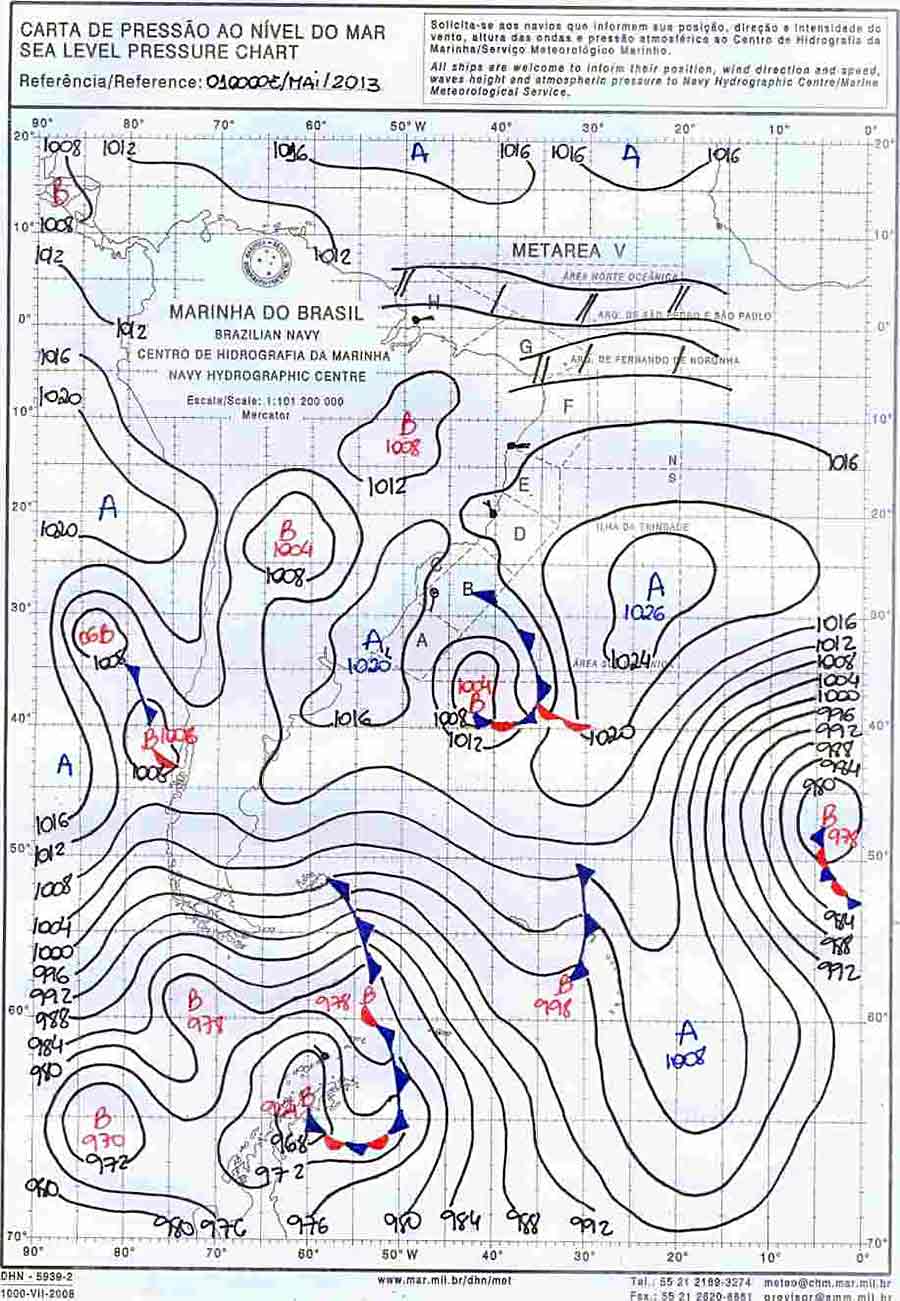 CARTA DE PRESSÃO AO NÍVEL DO MAR
SEA LEVEL PRESSURE CHART
Referência/Reference: 010000Z/MAI/2013
Solicita-se aos navios que informem sua posição, direção e intensidade do
vento, altura das ondas e pressão atmosférica ao Centro de Hidrografia da
Marinha/Serviço Meteorológico Marinho.
All ships are welcome to inform their position, wind direction and speed,
waves height and atmospheric pressure to Navy Hydrographic Centre/Marine
Meteorological Service.
90° 80° 70° 60° 50°W 40° 30° 20° 10° 0°
20° 20°
1008 1012 1016 A 1016 1016 A 1016
B
1008
10° 10°
1012 1012
METAREA V
ÁREA NORTE OCEÂNICA
MARINHA DO BRASIL
BRAZILIAN NAVY
CENTRO DE HIDROGRAFIA DA MARINHA
NAVY HYDROGRAPHIC CENTRE
Escala/Scale: 1:101 200 000
Mercator
H
ARQ. DE SÃO PEDRO E SÃO PAULO
0° 1012 0°
G ARQ. DE FERNANDO DE NORONHA
1016
F
1020
10° B 10°
1008
1016
1012
N
S
E
A
20° B 20°
1020 1004
D ILHA DA TRINDADE
1008
C
B A
30° 1026 30°
06B 1016
A A 1012
1008 1020 1024 1008
1004 1004
B 1000
1016 1008 996
40° B1008 1012 1020 992 40°
988
A 1008 984
980
1016 B
978
50° 1012 50°
1008
984
1004 988
1000
992
996
992 B 978 B B
60° 988 978 998 60°
984 A
980 1008
B
B
970 968
972 972
980
980 976 976 980 984 988 992
70° 70°
90° 80° 70° 60° 50°W 40° 30° 20° 10° 0°
DHN - 5939-2
1000-VII-2008
www.mar.mil.br/dhn/met
Tel.: 55 21 2189-3274 meteo@chm.mar.mil.br
Fax.: 55 21 2620-8861 previsor@smm.mil.br